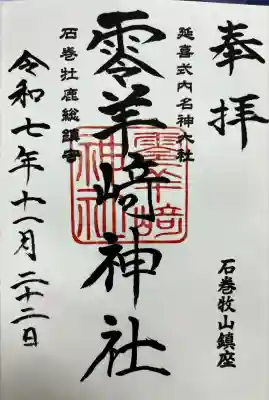 奉拝
石巻牧山鎮座
延喜式内名神大社
零羊崎神社
石巻牡鹿総鎮守
令和七年十一月二十二日
零羊崎
神社